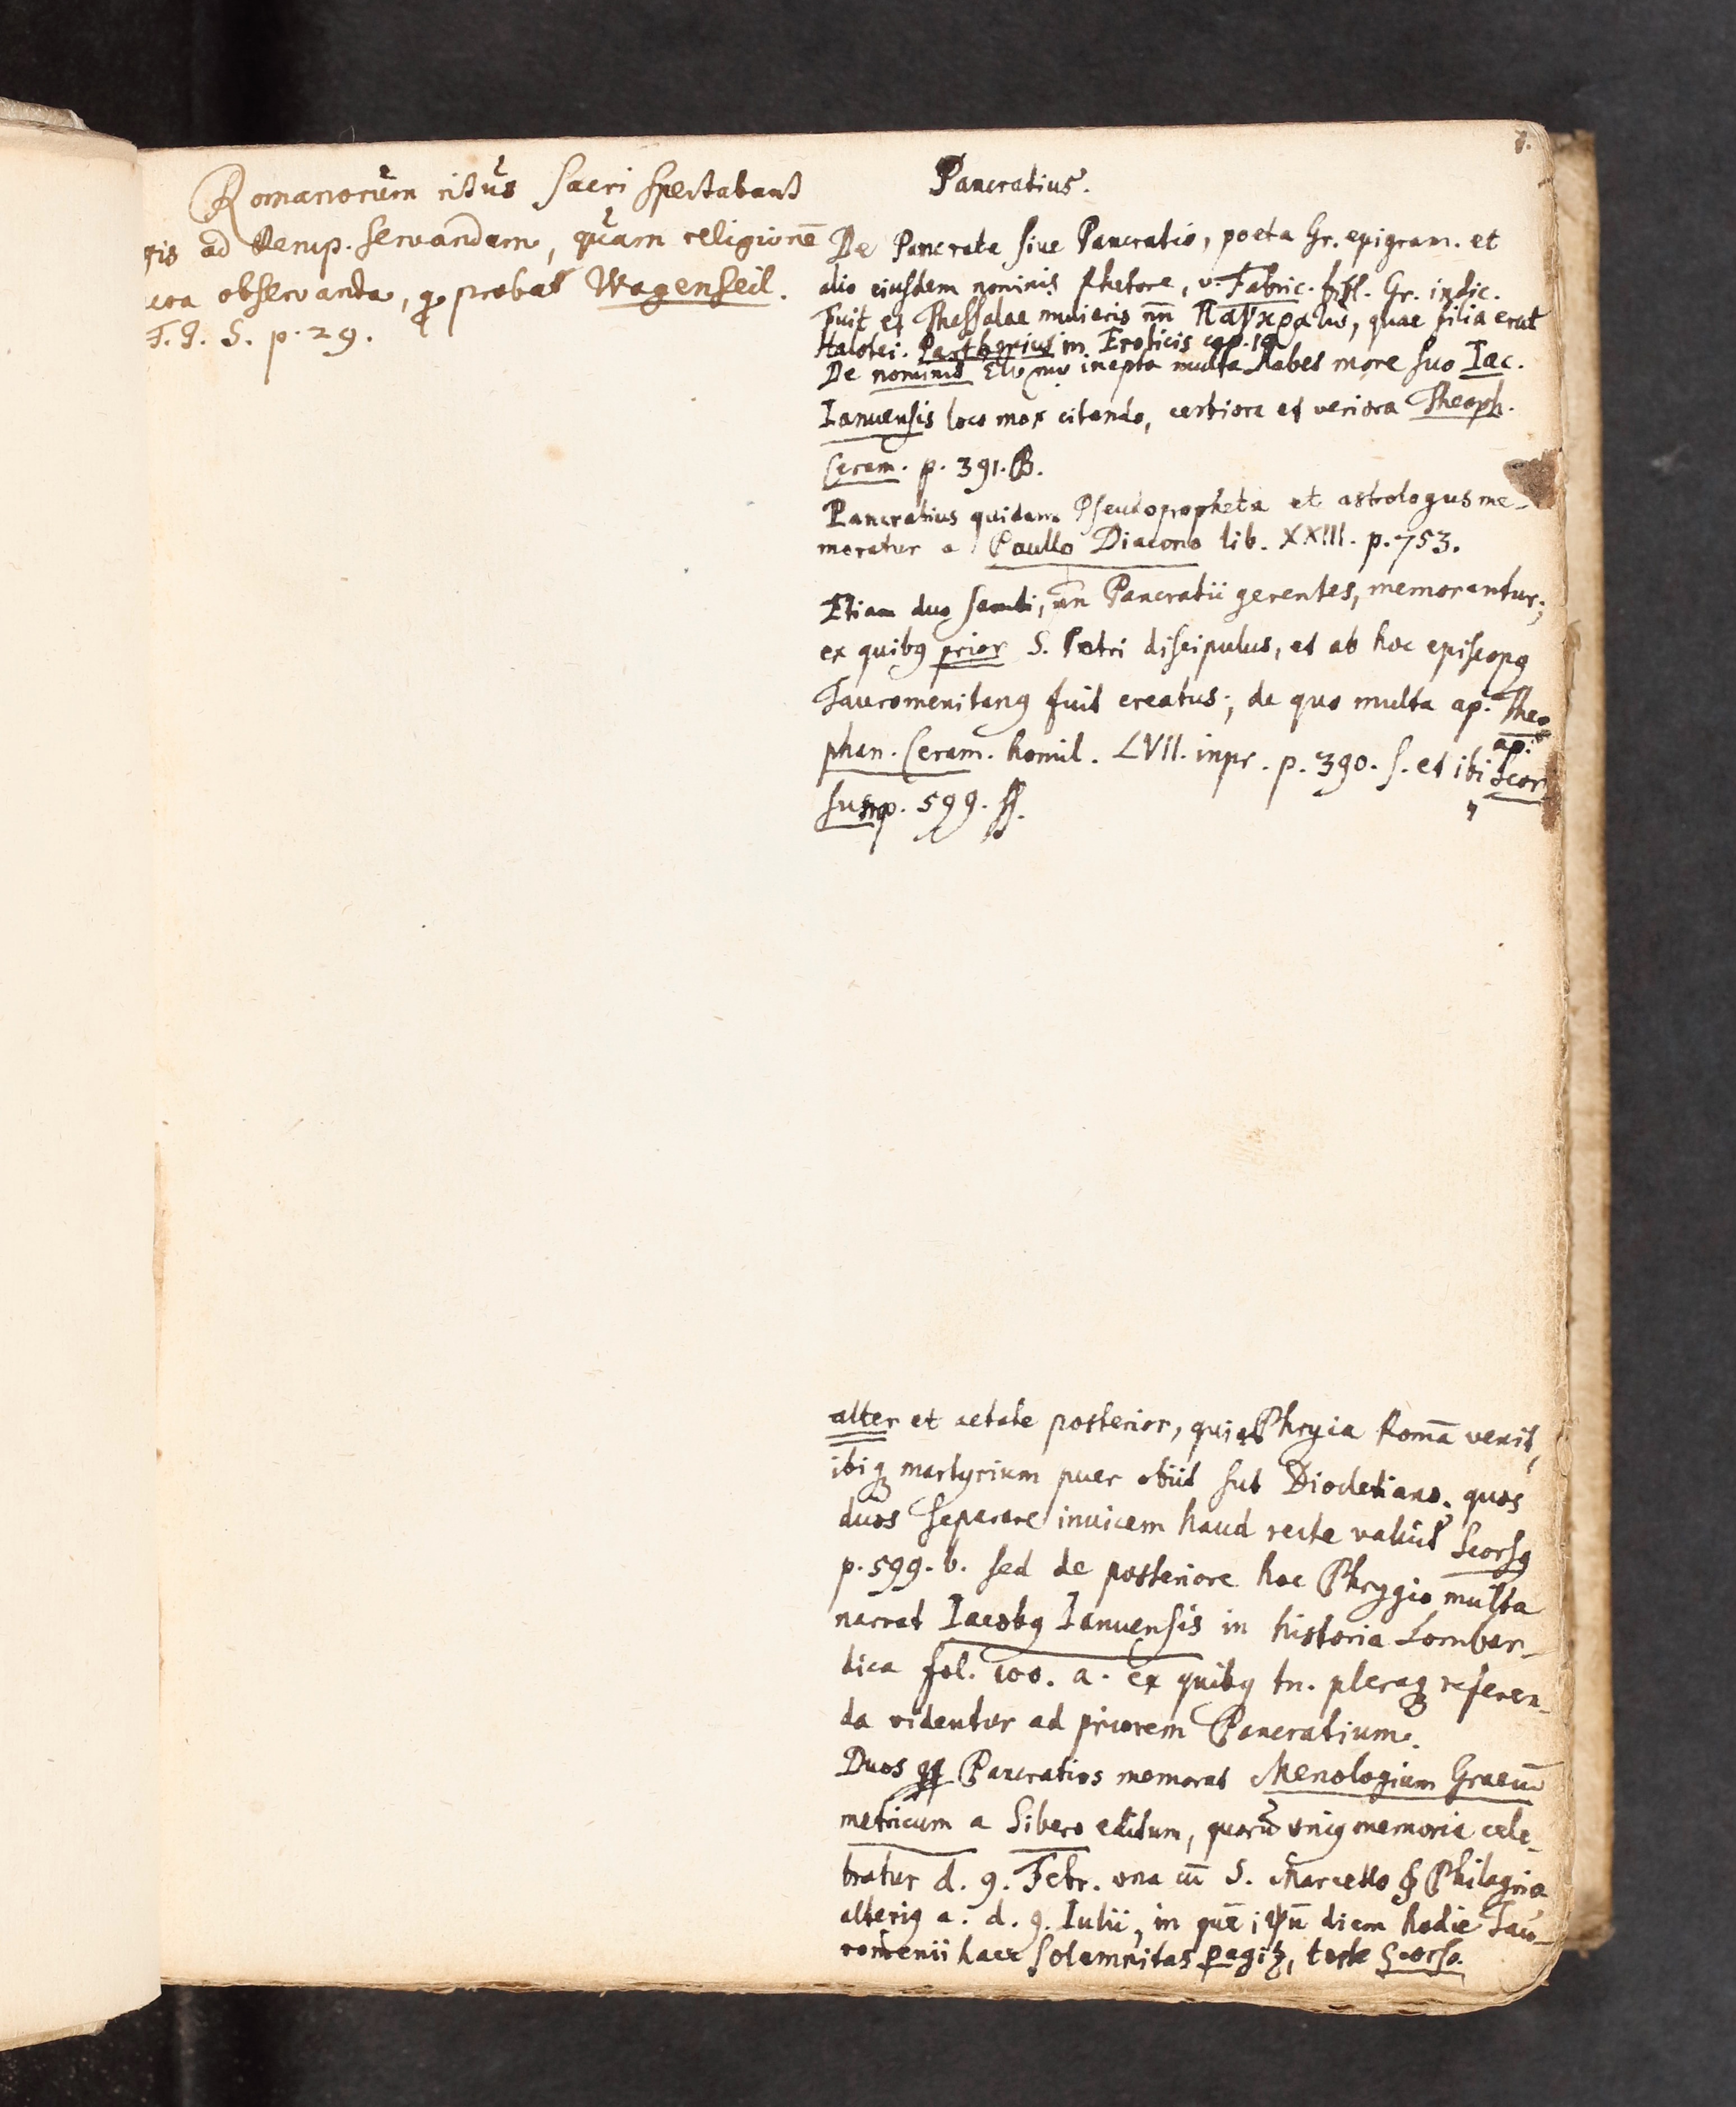 Romanorum ritus sacri spectabant
gis ad Remp. servandam, quam religionē
cra observanda, probat Wagenseil.
T. I. S. p. 29.
8.
Pancratius.
De Pancrate sive Pancratio, poeta Gr. epigram. et
alio eiusdem nominis Rhetore, v. Fabric. Gr. indic.
Fuit et Thessalae mulieris nn̄ quae filia erat
Parthenius in Eroticis cap. 19
De nominis inepta multa habes more suo Iac.
Ianuensis loco mox citando, certiora et veriora Theoph.
Ceram. p. 391. B.
Pancratius quidam Pseudopropheta et astrologus me-
moratur a Paullo Diacono lib. XXIII. p. 753.
Etiam duo sancti, nn̄ Pancratii gerentes, memorantur;
ex quibꝫ prior S. Petri discipulus, et ab hoc episcopꝫ
Tauromenitanꝫ fuit creatus; de quo multa ap. Theo-
phan. Ceram. homil. LVII. inpr. p. 390. s. et ibi ap. Scor-
sum p. 599. ss.
alter et aetate posterior, qui ab Phrygia Romā venit,
ibiqꝫ martyrium puer obiit sub Diocletiano. quos
duos separare invicem haud recte valuit Scorsꝫ
p. 599. b. sed de posteriore hoc Phrygio multa
narrat Iacobꝫ Ianuensis in historia Lombar-
dica fol. 100. a. ex quibꝫ tn. pleraqꝫ referen-
da videntur ad priorem Pancratium.
Duos qq Pancratios memorat Menologium Graecū
metricum a Sibero editum, quorū vniꝫ memoria cele-
bratur d. 9. Febr. vna cū S. Marcello & Philagrio
alteriꝫ a. d. 9. Iulii, in quē ipsū diem hodie Tau-
romenii haec solemnitas teste Scorso.